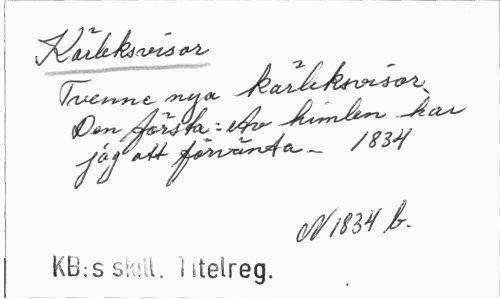 Kärleksvisor
Tvenne nya kärleksvisor.
Den första: Av himlen har
jag att förvänta_ 1834
N 1834 b.
KB:s skill. Titelreg.